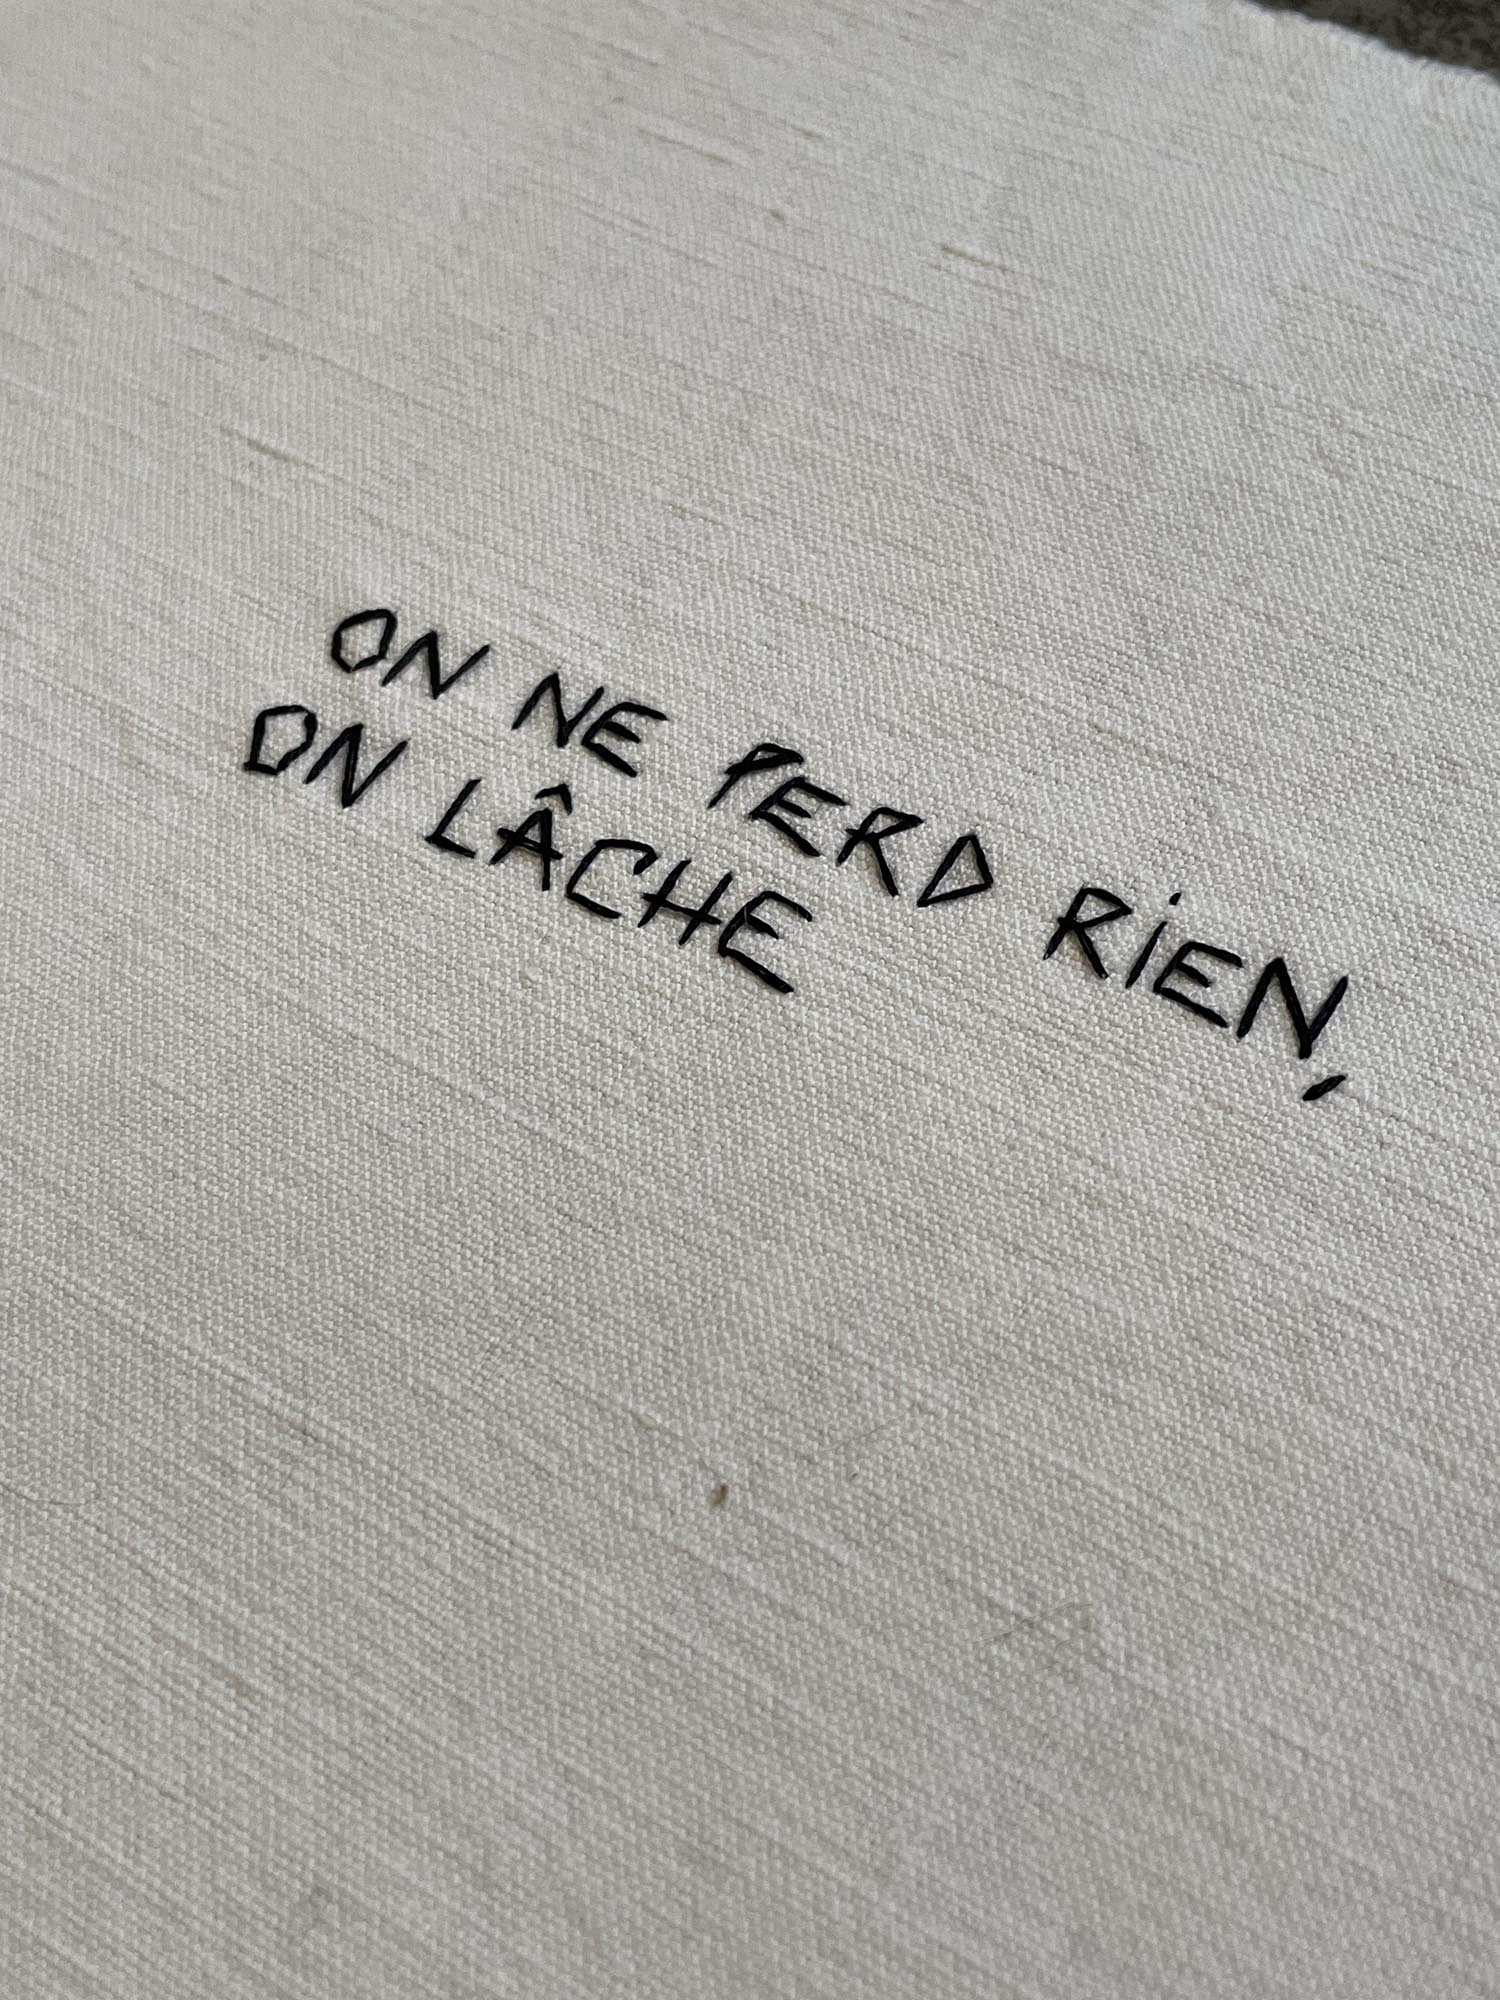 ON NE PERD RIEN,
ON LÂCHE